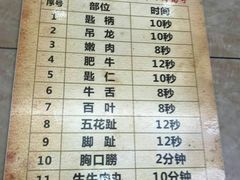 序号 部位 时间
1 匙柄 10秒
2 吊龙 10秒
3 嫩肉 8秒
4 肥牛 12秒
5 匙仁 10秒
6 牛舌 8秒
7 百叶 8秒
8 五花趾 12秒
9 脚趾 12秒
10 胸口朥 2分钟
11 牛牛肉丸 10分钟